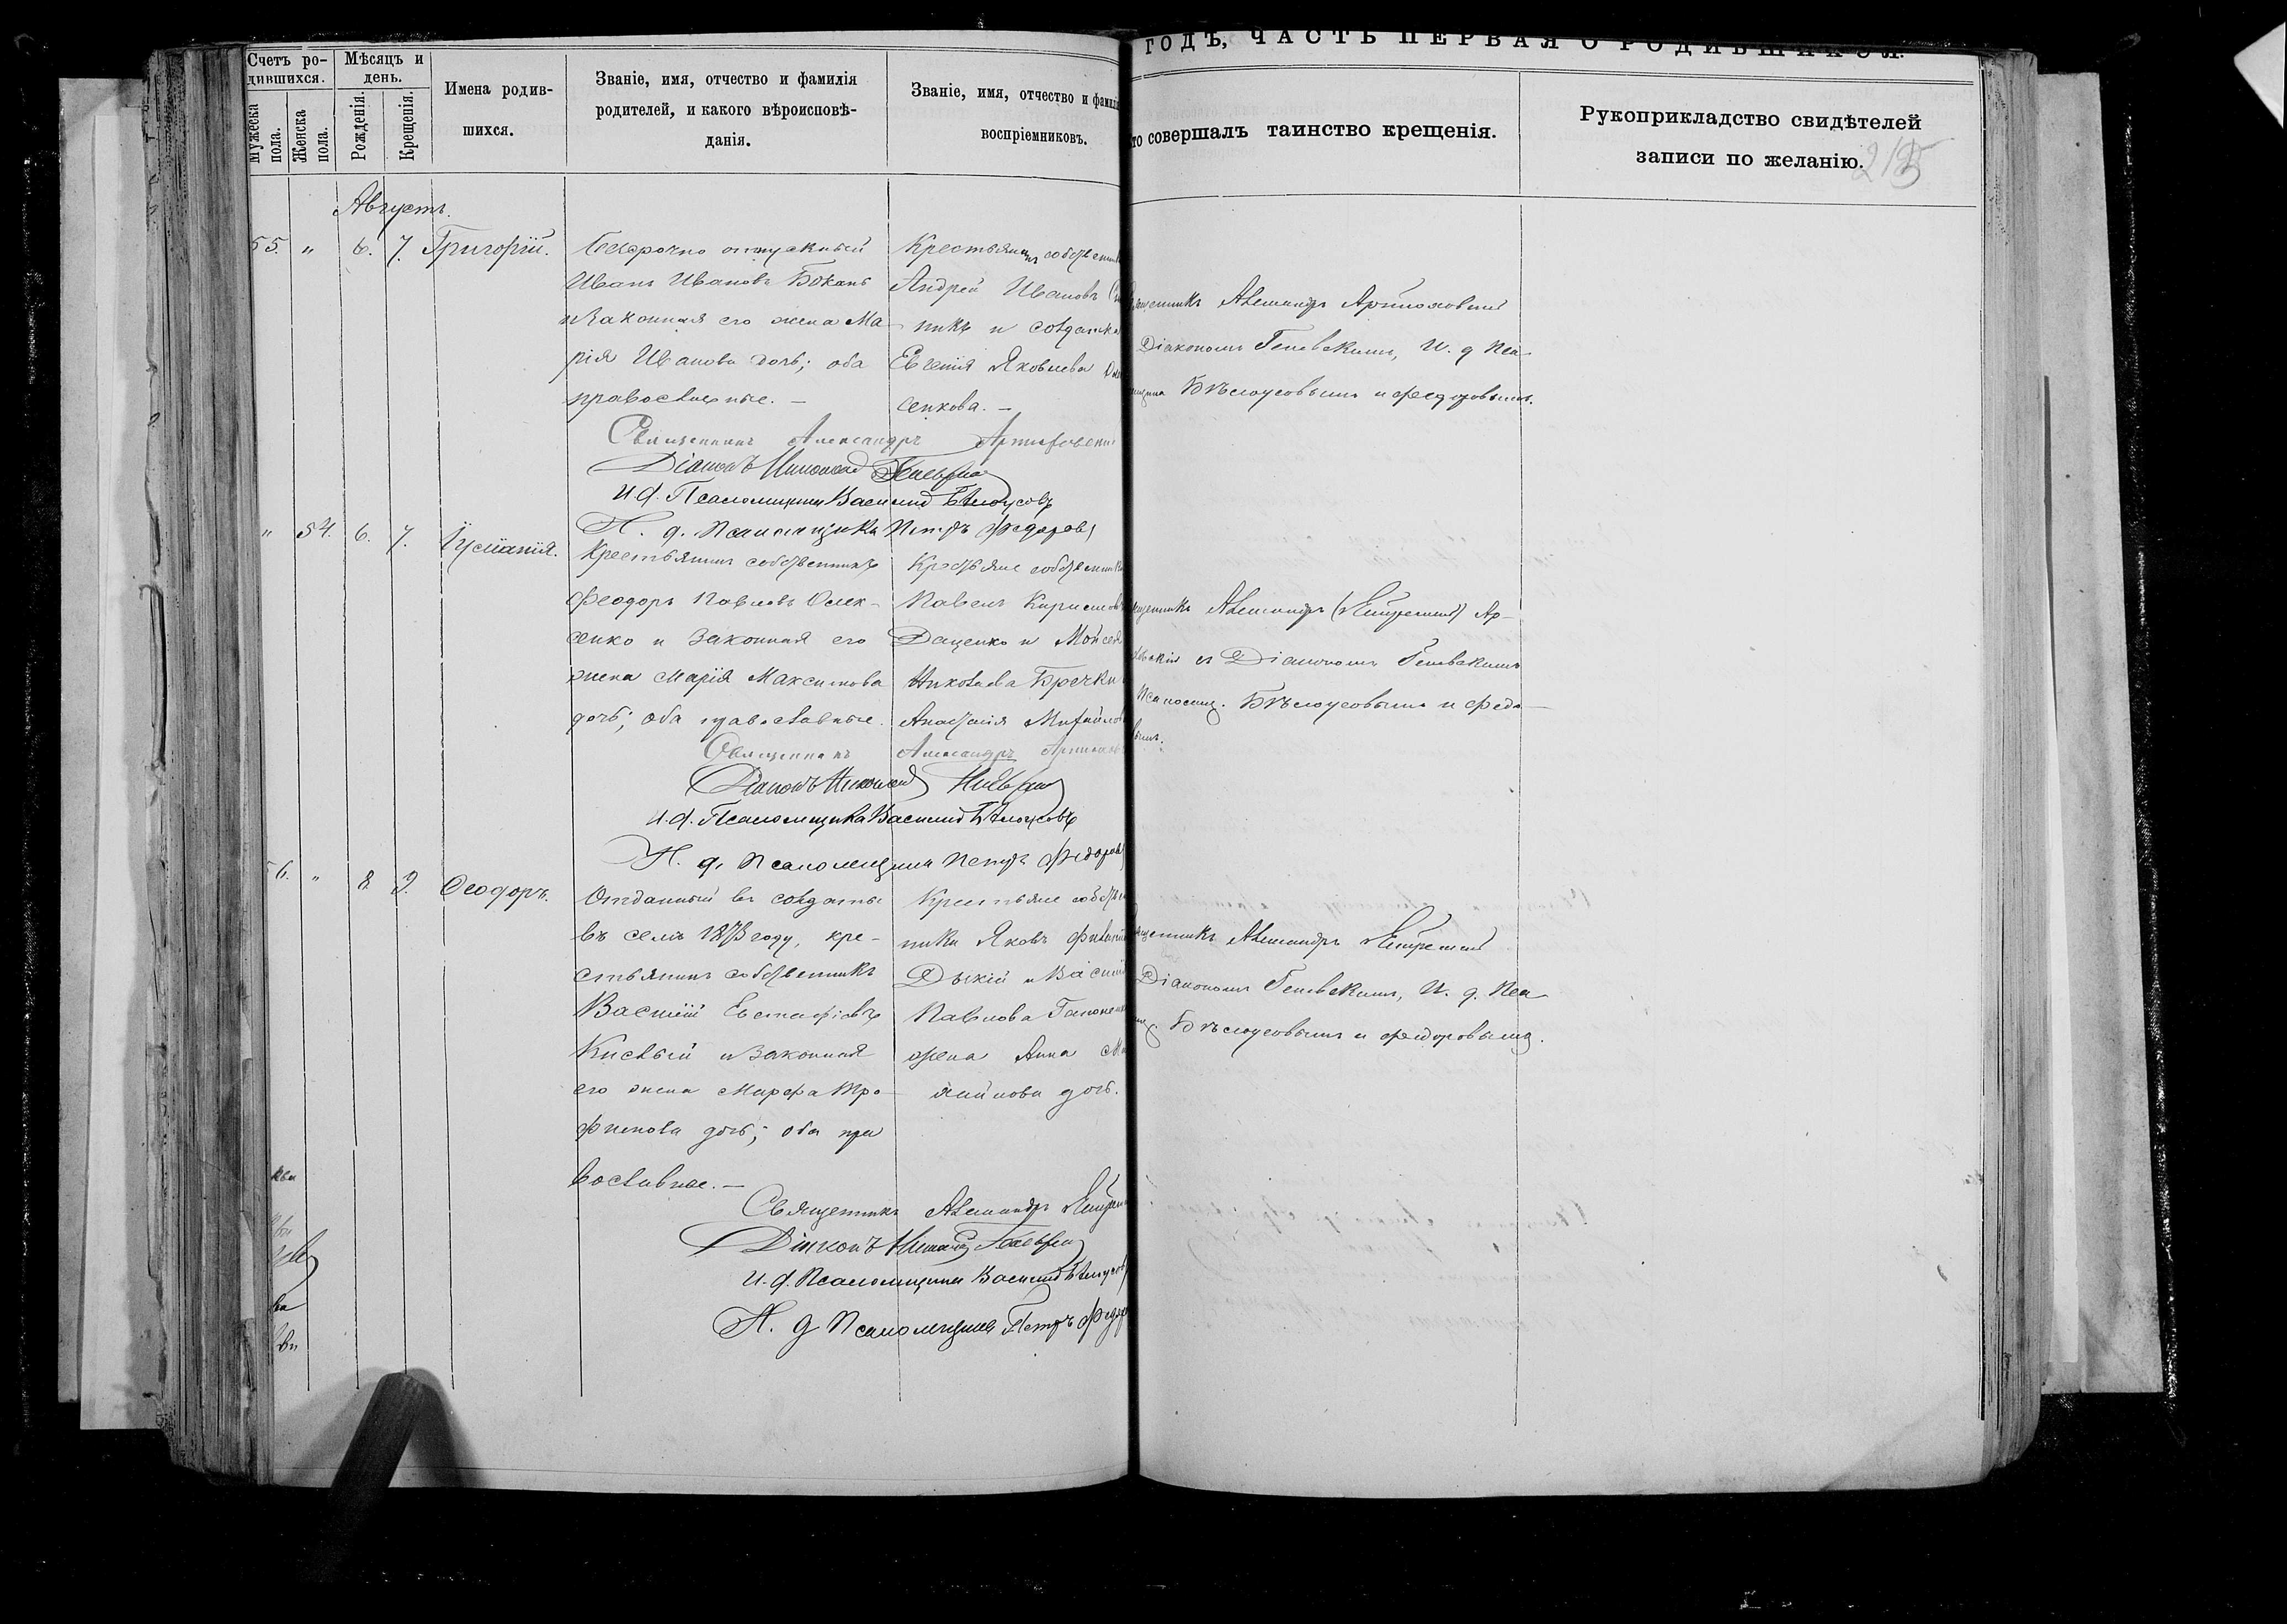 Счетъ ро-
дившихся.
Мужеска
пола.
Женска
пола.
Мѣсяцъ и
день.
Рожденія.
Крещенія.
Имена родив-
шихся.
Званіе, имя, отчество и фамилія
родителей, и какого вѣроисповѣ-
данія.
Званіе, имя, отчество и фамилі
воспріемниковъ.
ГОДЪ, ЧАСТЬ ПЕРВАЯ О РОДИВШИХСЯ.
то совершалъ таинство крещенія.
Рукоприкладство свидѣтелей
записи по желанію.
Августъ.
55. " 6. 7. Григорій.
Безсрочно отпускный
Иванъ Ивановъ Боканъ
и законная его жена Ма-
рія Иванова дочь; оба
православные. —
Крестьянинъ собственни
Андрей Ивановъ
никъ и солдатка
Евгенія Яковлева
сенкова. —
Александръ
Діакономъ Гаевскимъ, И. д. Пса-
Бѣлоусовымъ и Федоровымъ.
Священникъ Александръ
Діаконъ Николай
И. д. Псаломщика Василій Бѣлоусовъ
И. д. Псаломщика Петръ Федоровъ
" 54. 6. 7.
Крестьянинъ собственникъ
Феодоръ Павловъ Олек-
сенко и законная его
жена Марія Максимова
дочь; оба православные.
Крестьяне собственники
Павелъ Кириловъ
Даценко и Мойсея
Николаева Бречки
Анастасія Михайлов
Александръ Ар-
и Діакономъ Гаевскимъ
Псаломщ. Бѣлоусовымъ и Федо-
вымъ.
Священникъ Александръ
Діаконъ Николай
И. д. Псаломщика Василій Бѣлоусовъ
И. д. Псаломщика Петръ Федоровъ
56. " 8. 9. Ѳеодоръ.
Отданный въ солдаты
въ семъ 1873 году, кре-
стьянинъ собственникъ
Василій Евстафіевъ
Кислый и законная
его жена Марфа Тро-
фимова дочь; оба пра
вославные. —
Крестьяне собстве
ники Яковъ Филипп
Дыкій и Василія
Павлова Гапоненк
жена Анна Ми
хайлова дочь.
Александръ
Діакономъ Гаевскимъ, И. д. Пса
Бѣлоусовымъ и Федоровымъ.
Священникъ Александръ
Діаконъ Николай
И. д. Псаломщика Василій Бѣлоусов
И. д. Псаломщика Петръ Федор